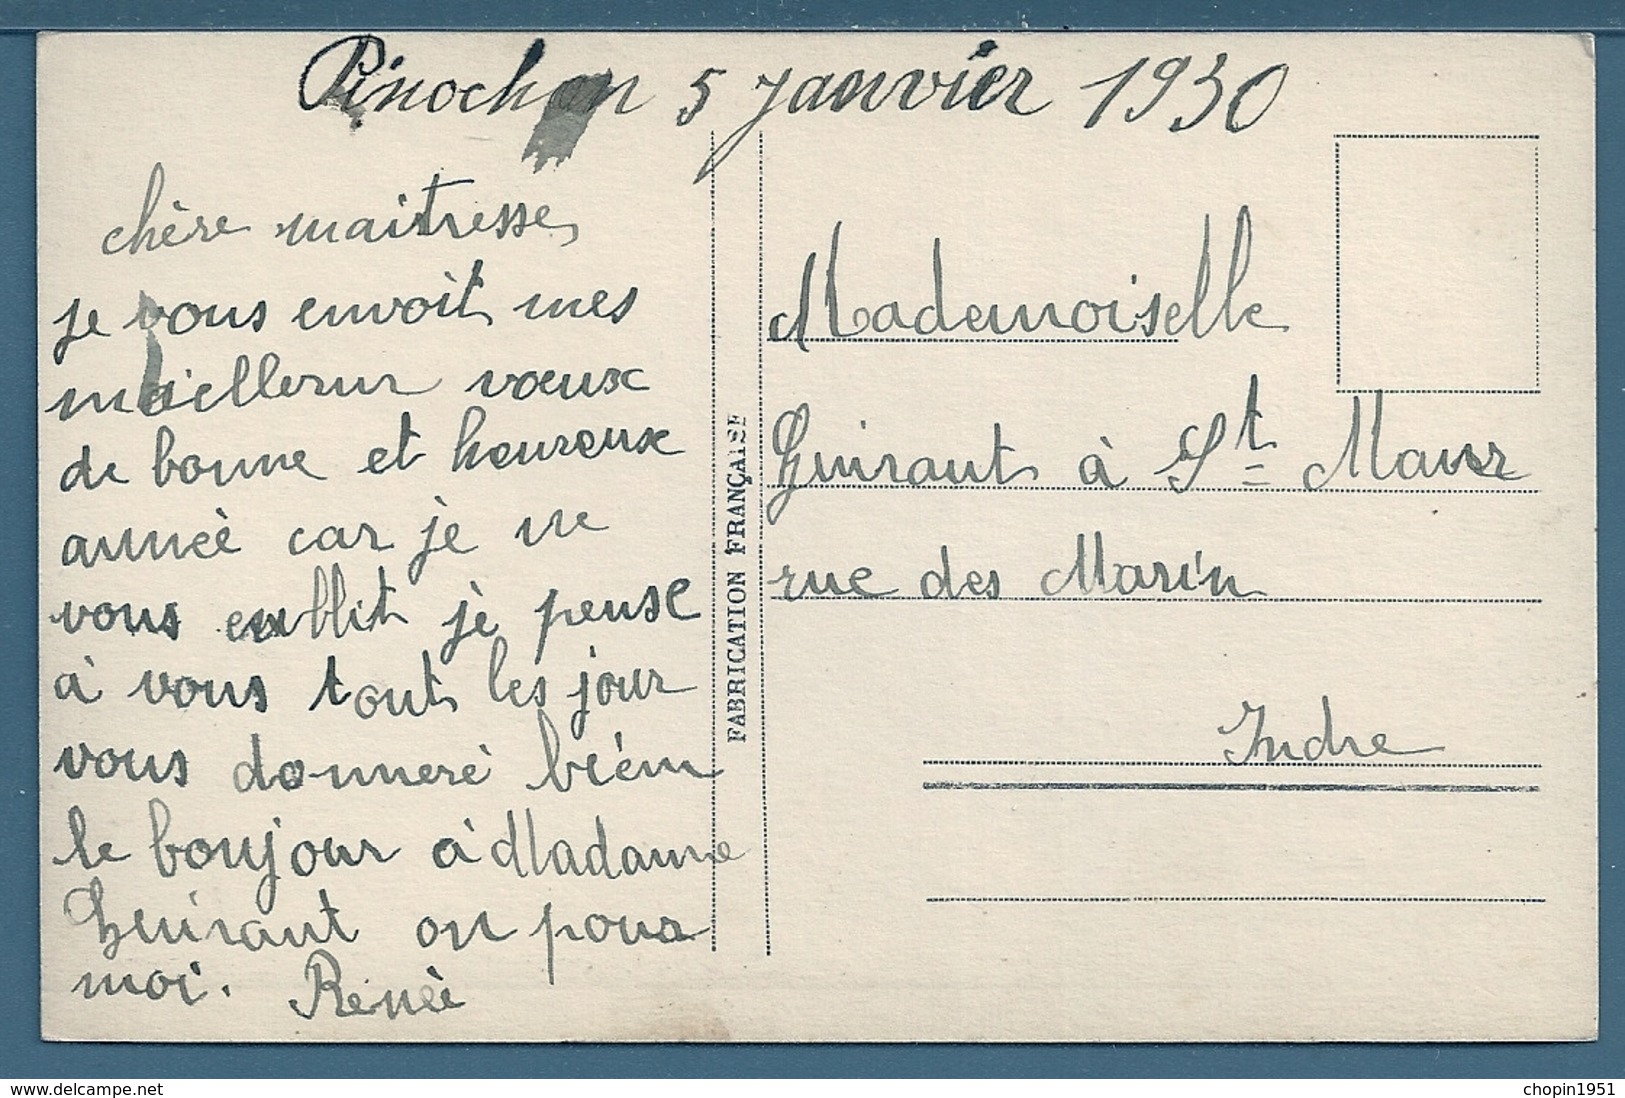 Pinochon 5 janvier 1930
chère maitresse
je vous envoit mes
meillerur vœux
de bonne et heureuse
année car je ne
vous enblit je pense
à vous tout les jour
vous donneré bién
le bonjour à Madame
Guiraut on pour
moi. Renée
FABRICATION FRANÇAISE
Mademoiselle
Guiraut à St Maur
rue des Marin
Indre
www.delcampe.net
chopin1951